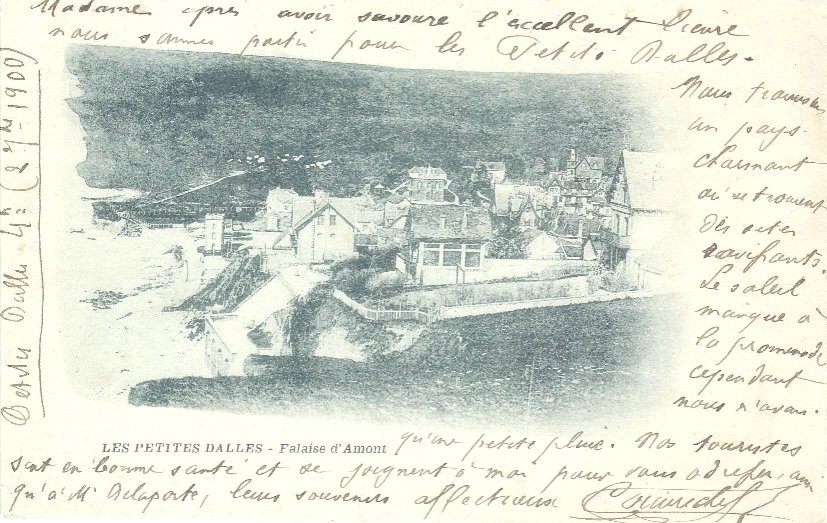 Madame apres avoir savouré l'excellent lièvre
nous sommes partis pour les Petites Dalles.
Nous trouvons
un pays
charmant
où se trouvent
des sites
ravissants.
Le soleil
manque à
la promenade
cependant
nous n'avons
qu'une petite pluie. Nos touristes
sont en bonne santé et se joignent à moi pour vous adresser, ainsi
qu'à Mr Delaporte, leurs souvenirs affectueux
Petites Dalles 4h (27 - 1900)
LES PETITES DALLES - Falaise d'Amont